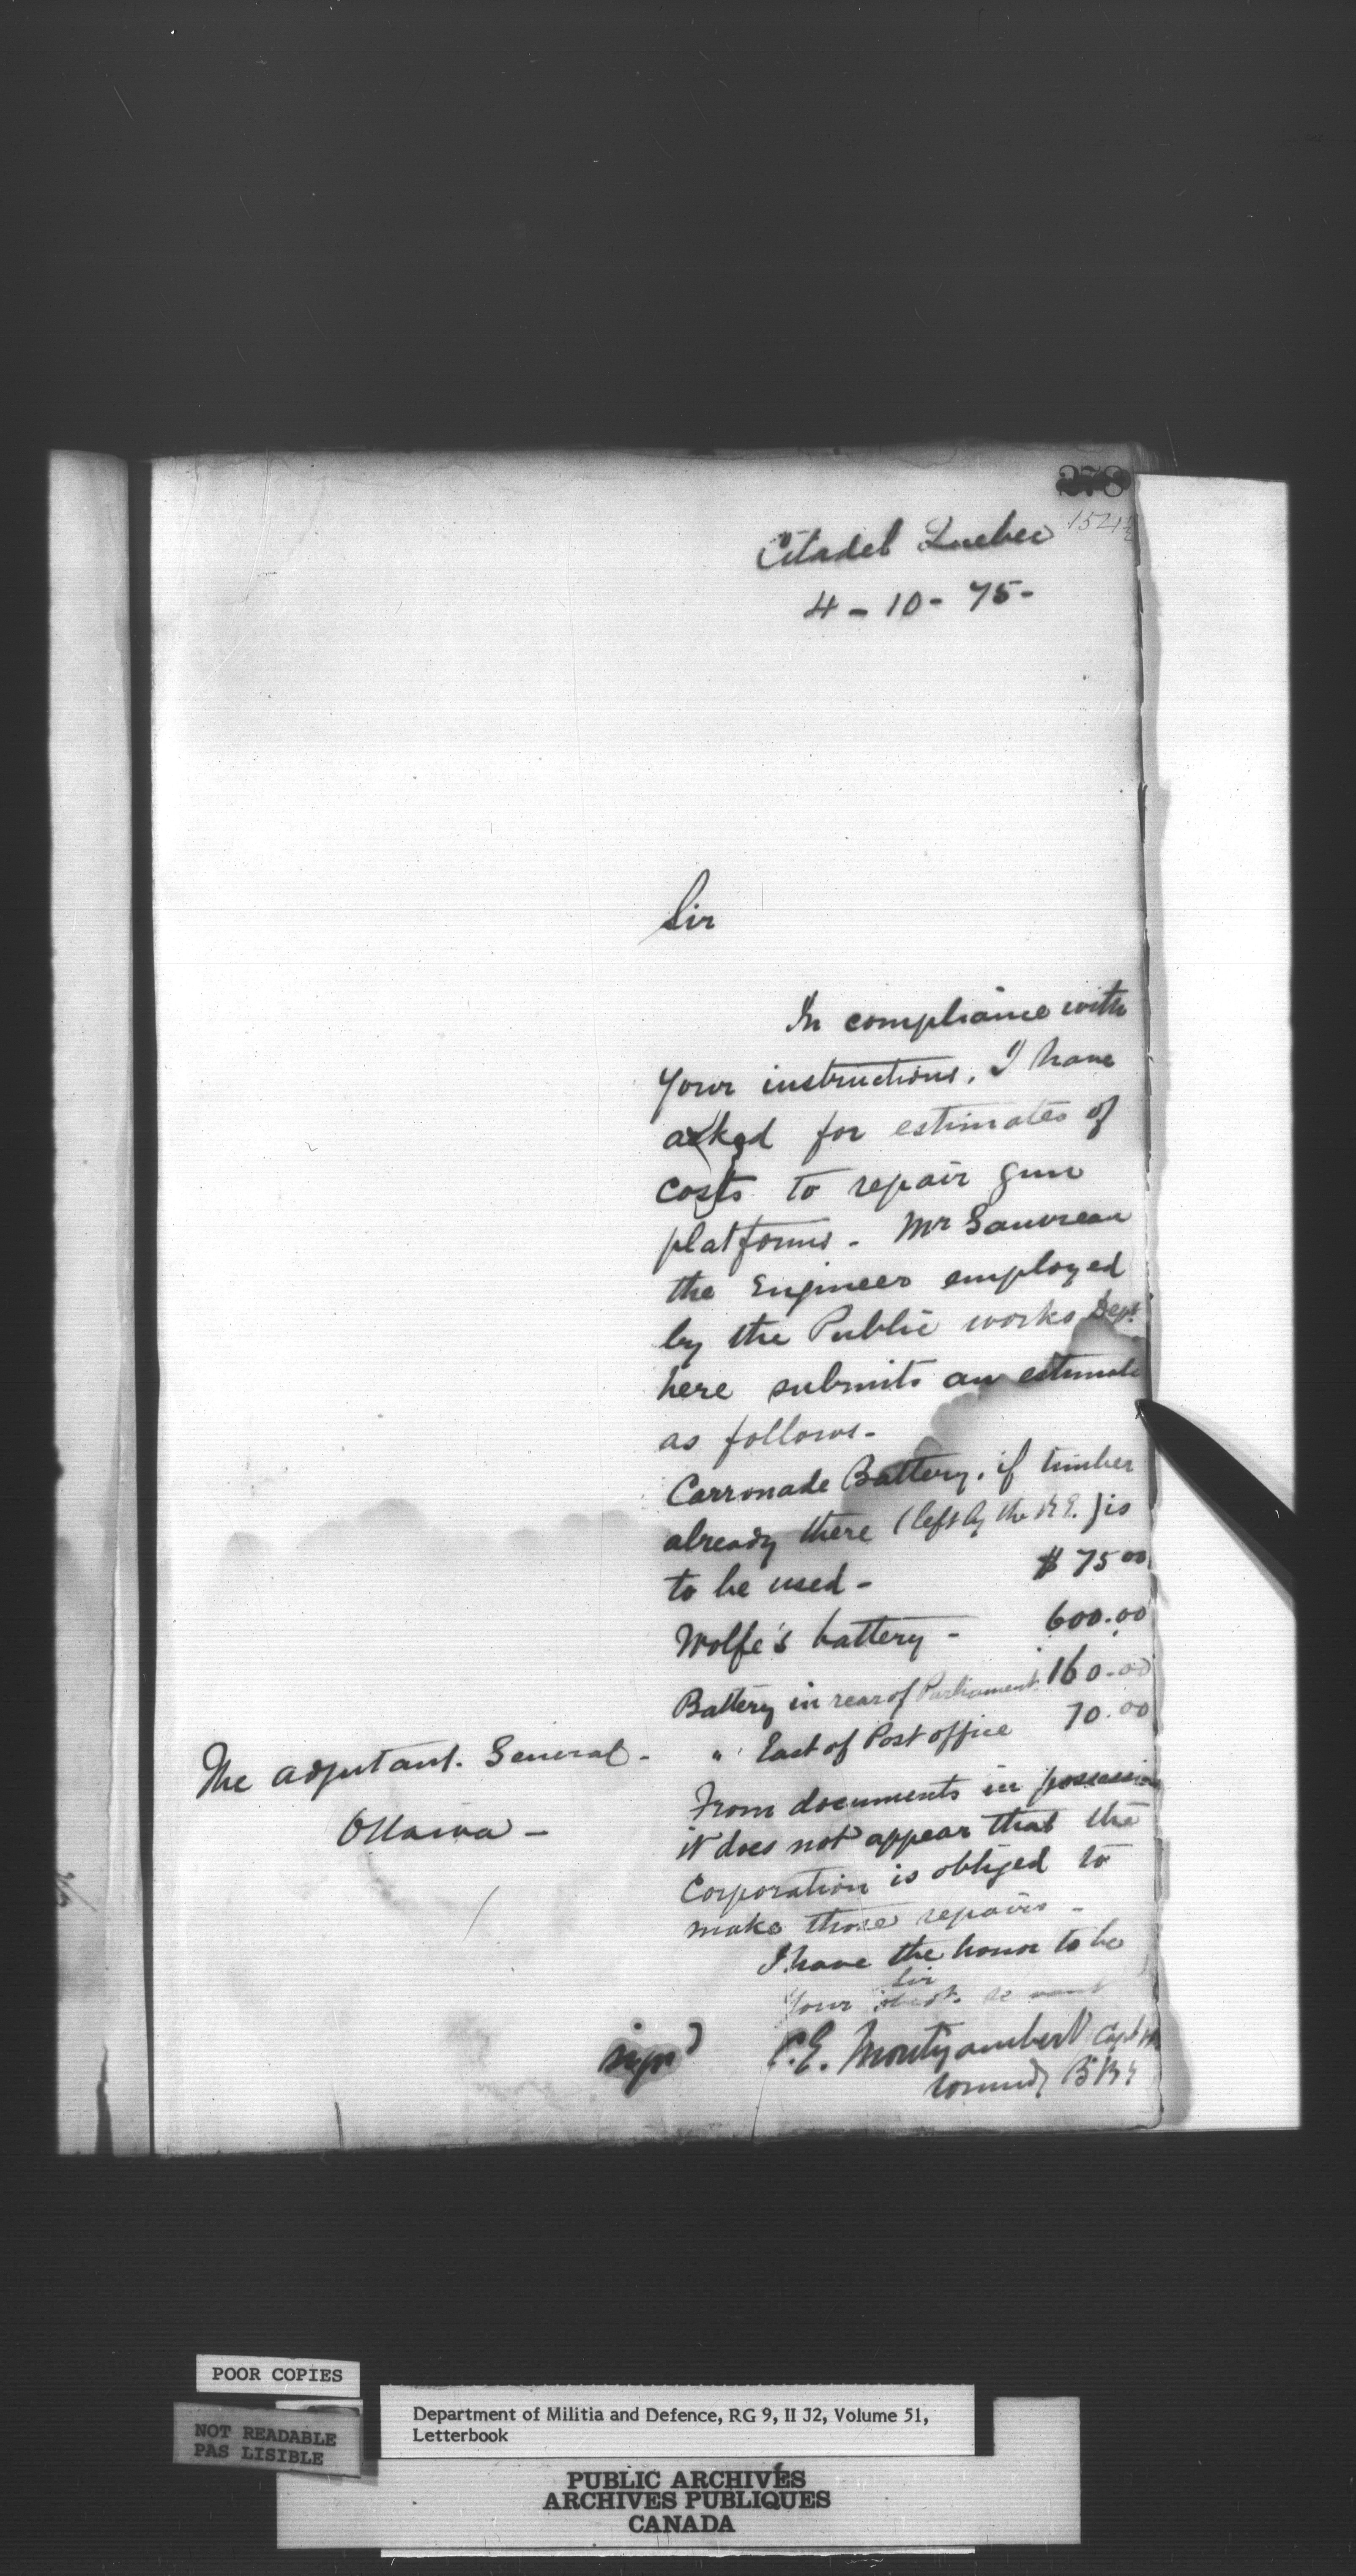 278
Citadel Quebec
4 - 10 - 75 -
Sir
In compliance with
your instructions, I have
asked for estimates of
costs to repair gun
platforms - Mr Gauvreau
the Engineer employed
by the Public works Dept.
here submits an estimate
as follows -
Carronade Battery, if timber
already there (left by the R.E.) is
to be used - $ 75 00
Wolfe's battery - 600.00
Battery in rear of Parliament 160.00
" East of Post office 70.00
The Adjutant. General -
Ottawa -
From documents in possession
it does not appear that the
Corporation is obliged to
make those repairs -
I have the honor to be
Sir
Your obedt. servant
signd C.E. Montizambert Capt
Commdg B B
POOR COPIES
NOT READABLE
PAS LISIBLE
Department of Militia and Defence, RG 9, II J2, Volume 51,
Letterbook
PUBLIC ARCHIVES
ARCHIVES PUBLIQUES
CANADA